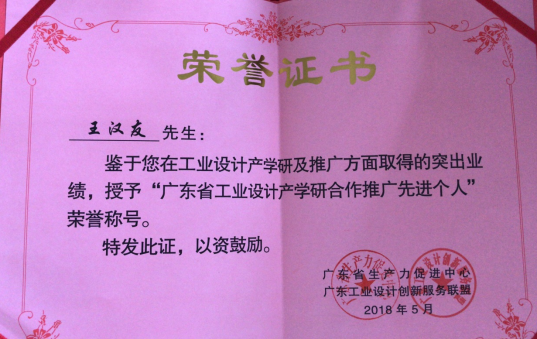 荣誉证书
王汉友 先生：
鉴于您在工业设计产学研及推广方面取得的突出业
绩，授予“广东省工业设计产学研合作推广先进个人”
荣誉称号。
特发此证，以资鼓励。
广东省生产力促进中心
广东工业设计创新服务联盟
2018年5月